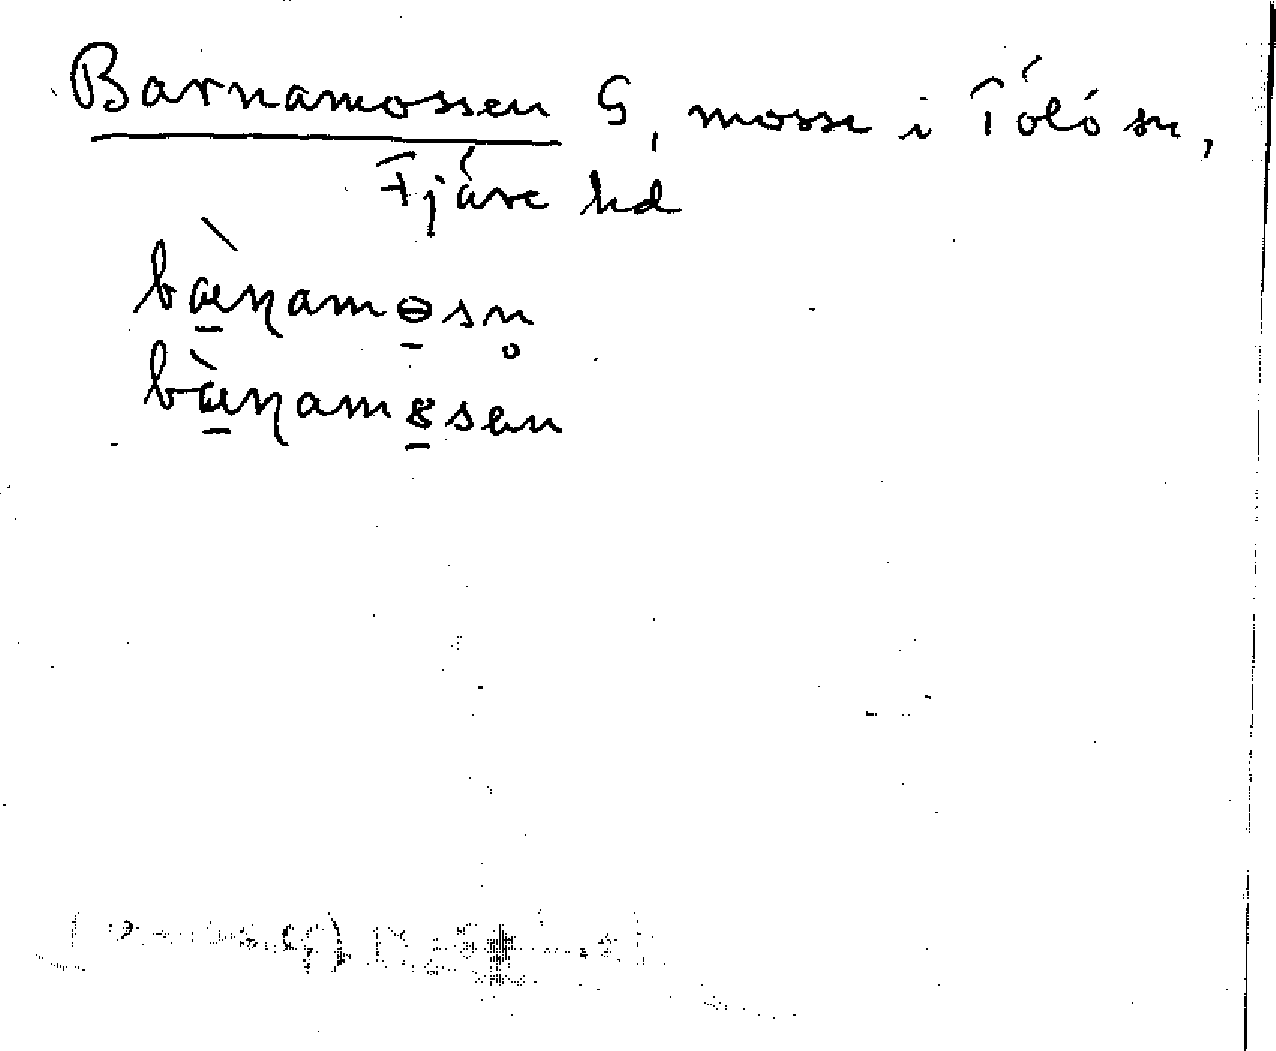 Barnamossen G, mosse i Tölö sn,
Fjäre hd
bàɳamɵsn̥
bàɳam8sen